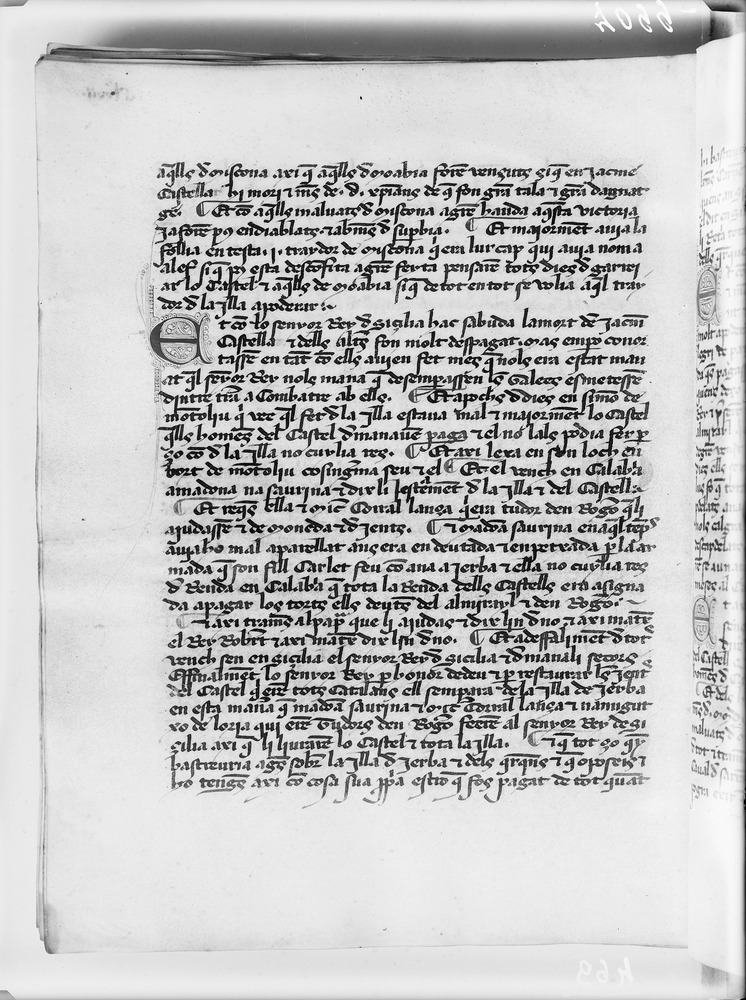 aq̃lls d̃ miscona axi q̃ aq̃lls d̃ moabia forẽ vensuts si q̃ en Jacme
Castella hi mori ⁊ mẽs de .d. xp̃ians de q̃ fon grã tala ⁊ grã dapnat
ge. Et cõ aq̃lls maluats d̃ miscona agrẽ hauda aq̃sta victoria
ja forẽ endiablats ⁊ d̃ supbia. Et maiormẽt auia la
follia en testa .i. traydor de miscona q̃ era lur cap qui auia nom a
alef si q̃ esta descofita agrẽ feyta pensarẽ tots dies d̃ garrei
ar lo Castel ⁊ aq̃lls de moabia si q̃ de tot en tot se volia aq̃l tray
dor d̃ la illa apoderar
Et cõ lo senyor Rey d̃ Sisilia hac sabuda la mort dẽ Jacm̃
Castella ⁊ dells altꝭ fon molt despagat mas empo conor
tassẽ en tãt cõ ells auien fet mes q̃ nols era estat man
at q̃l senyor Rey nols mana q̃ desemparassen les Galees e sametessẽ
dintre trã a Combatre ab ells. Et apochs d̃ dies en simõ de
motoliu q̃ vee q̃l fet d̃ la illa estaua mal ⁊ maiormẽt lo Castel
q̃lls homẽs del Castel d̃manauẽ paga ⁊ el no lals podia fer p
ço cõ d̃ la illa no cullia res. Et axi lexa en son loch en
bort de motoliu cosingerma seu ⁊ el Et el vench en Calabr̃a
a madona na saurina ⁊ dix li lestamẽt d̃ la illa ⁊ del Castell
Et reques ella ⁊ mic̃ Corral lança q̃ era tudor den Rogo q̃ li
ajudassẽ ⁊ de moneda ⁊ d̃ jents. ⁊ madoã saurina en aq̃l tẽps
auiaho mal aparellat ans era en deutada ⁊ enpetxada p la ar
mada q̃ son fill Carlet feu cõ ana a jerba ⁊ ella no cullia res
d̃ Renda en Calabr̃a q̃ tota la Renda dells Castells era asigna
da a pagar los torts ells deutes del almirayl ⁊ den Rogo.
⁊ axi trames al papa que li ajudas ⁊ dix lin d̃ no ⁊ axi matex
el Rey Robert ⁊ axi matex dix lin d̃ no. Et a deffallimẽt d̃ tot
vench sen en sicilia el senyor Rey d̃ sicilia ⁊ d̃manali secors
E ffinalmẽt lo senyor Rey p honor de deu ⁊ p restaurar les jents
del Castel q̃ erẽ tots Catalans ell sempara de la illa de jerba
en esta maña q̃ madoã saurina ⁊ mic̃ Corral lança ⁊ n amigut
xo de loria qui erẽ Tudors den Rogo feerẽ al senyor Rey de si
silia axi q̃ li liurarẽ lo Castel ⁊ tota la illa. ⁊ q̃ tot ço q̃
bastreuria ages sobre la illa d̃ jerba ⁊ dels q̃rq̃ns ⁊ q̃
ho tengues axi cõ cosa sua ꝓpa estro q̃ fos pagat de tot quãt